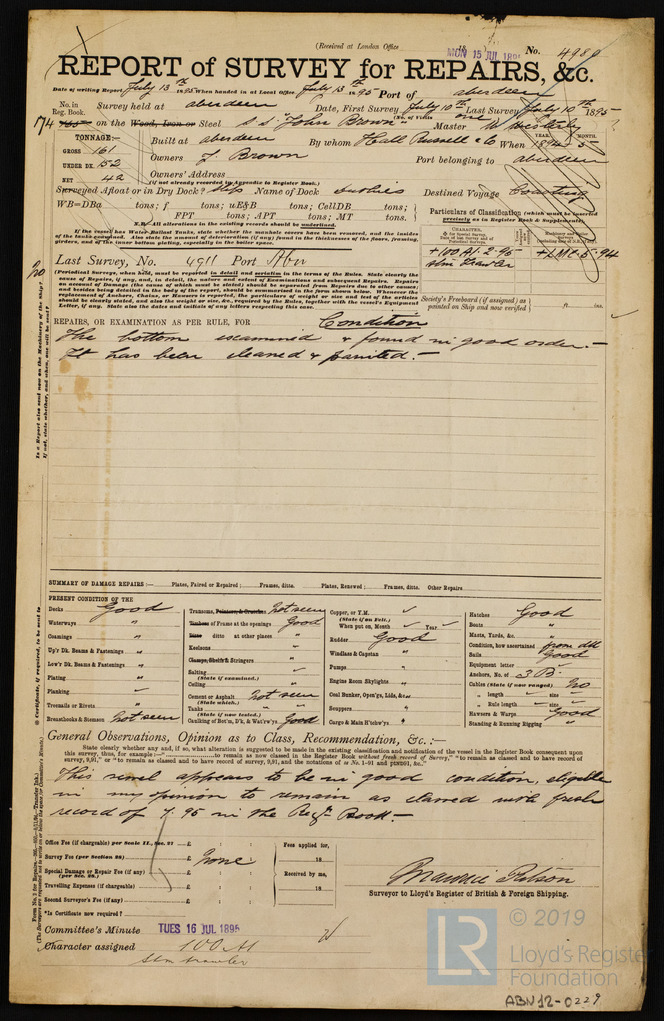 (Received at London Office
MON 15 JUL 1895
No. 4980
REPORT of SURVEY for REPAIRS, &c.
Date of writing Report July 13th 1895 When handed in at Local Office July 13th 1895 Port of Aberdeen
No. in Reg. Book. Survey held at Aberdeen Date, First Survey July 10th Last Survey July 10th 1895
(No. of Visits one)
174 on the Wood, Iron or Steel S.S. "John Brown" Master W. Westerby
TONNAGE:—
GROSS 161
UNDER DK. 152
NET 42
Built at Aberdeen By whom Hall Russell & Co When 1894 5
YEAR. MONTH.
Owners J Brown Port belonging to Aberdeen
Owners' Address
(If not already recorded in Appendix to Register Book.)
Surveyed Afloat or in Dry Dock? Slip Name of Dock Destined Voyage Coasting
WB=DBa tons; f tons; uE&B tons; CellDB tons;
FPT tons; APT tons; MT tons.
N.B. All alterations in the existing records should be underlined.
If the vessel has Water Ballast Tanks, state whether the manhole covers have been removed, and the insides of the tanks examined. Also state the amount of deterioration (if any) found in the thicknesses of the floors, framing, girders, and of the inner bottom plating, especially in the boiler space.
Particulars of Classification (which must be inserted precisely as in Register Book & Supplements.
+100A1 2.95
Stm Trawler
+LMC 5.94
Last Survey, No. 4911 Port Abn
(Periodical Surveys, when held, must be reported in detail and seriatim in the terms of the Rules. State clearly the cause of Repairs, if any, and, in detail, the nature and extent of Examinations and subsequent Repairs. Repairs on account of Damage (the cause of which must be stated) should be separated from Repairs due to other causes; and besides being detailed in the body of the report, should be summarised in the form shown below. Whenever the replacement of Anchors, Chains, or Hawsers is reported, the particulars of weight or size and test of the articles should be clearly stated, and also the weight or size, &c., required by the Rules, together with the vessel's Equipment Letter, if any. State also the dates and initials of any letters respecting this case.
Society's Freeboard (if assigned) as painted on Ship and now verified ft. ins.
Is a Report also sent now on the Machinery of the Ship? No
If not, state whether, and when, one will be sent?
REPAIRS, OR EXAMINATION AS PER RULE, FOR Condition
The bottom examined & found in good order.—
It has been cleaned & painted.—
SUMMARY OF DAMAGE REPAIRS:— Plates, Faired or Repaired; Frames, ditto. Plates, Renewed; Frames, ditto. Other Repairs
PRESENT CONDITION OF THE
Decks Good
Waterways "
Coamings "
Up'r Dk. Beams & Fastenings "
Low'r Dk. Beams & Fastenings "
Plating "
Planking
Treenails or Rivets "
Breasthooks & Stemson Not seen
Transoms, Pointers, & Crutches Not seen
Timbers of Frame at the openings Good
Ditto ditto at other places "
Keelsons "
Clamps, Shelfs & Stringers "
Salting
(State if examined.)
Ceiling "
Cement or Asphalt Not seen
(State which.)
Tanks "
(State if now tested.)
Caulking of Bot'm, D'k, & Wat'rw'ys Good
Copper, or Y.M.
(State if on Felt.)
When put on, Month Year
Rudder Good
Windlass & Capstan "
Pumps "
Engine Room Skylights "
Coal Bunker, Open'gs, Lids, &c. "
Scuppers "
Cargo & Main H'tchw'ys
Hatches Good
Boats "
Masts, Yards, &c. "
Condition, how ascertained from dk
Sails Good
Equipment letter
Anchors, No. of 3 B.
Cables (State if now ranged) No
" length size
" Rule length size
Hawsers & Warps Good
Standing & Running Rigging "
General Observations, Opinion as to Class, Recommendation, &c.:—
State clearly whether any and, if so, what alteration is suggested to be made in the existing classification and notification of the vessel in the Register Book consequent upon this survey, thus, for example:—" to remain as now classed in the Register Book without fresh record of Survey," "to remain as classed and to have record of survey, 9,91," or "to remain as classed and to have record of survey, 9,91, and the notations of ss No. 1-91 and ptND91, &c."
This vessel appears to be in good condition, eligible
in my opinion to remain as classed with fresh
record of 7.95 in the Regr Book.—
Office Fee (if chargeable) per Scale II., Sec. 27 £
Survey Fee (per Section 28) £ None
Special Damage or Repair Fee (if any) £
(per Sec. 28.)
Travelling Expenses (if chargeable) £
Second Surveyor's Fee (if any) £
*Is Certificate now required?
Fees applied for,
18
Received by me,
18
Surveyor to Lloyd's Register of British & Foreign Shipping.
Committee's Minute TUES 16 JUL 1895
Character assigned 100A1
Stm trawler
© 2019
LR
Lloyd's Register
Foundation
ABN12-0229